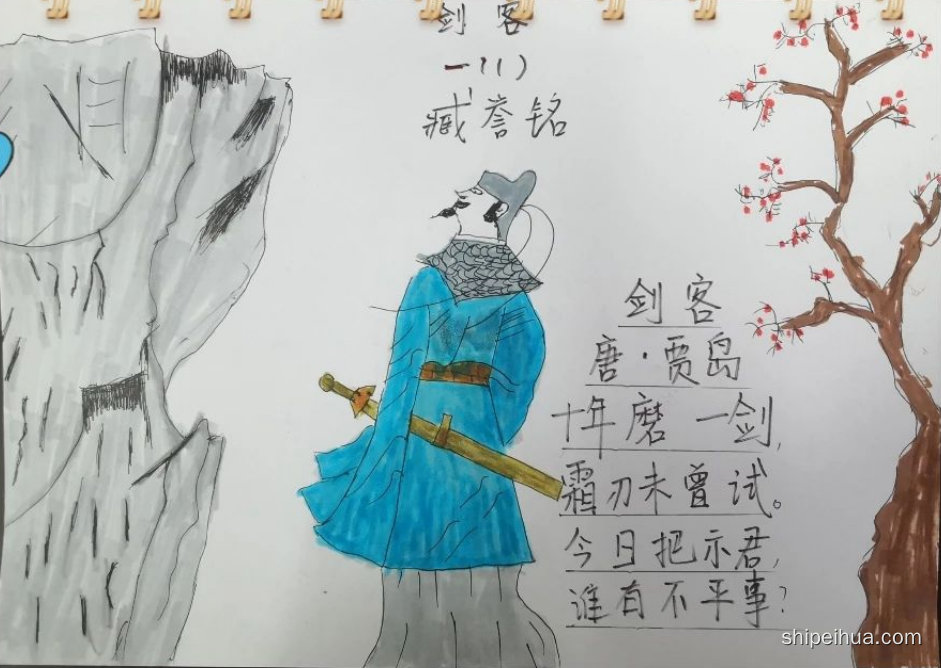 剑客
一(1)
臧誉铭
剑客
唐·贾岛
十年磨一剑,
霜刃未曾试。
今日把示君,
谁有不平事?
shipeihua.com